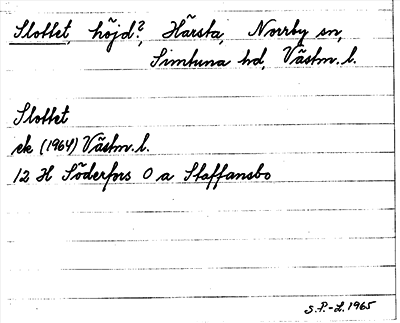 Slottet, höjd?, Härsta, Norrby sn,
Simtuna hd, Västm. l.
Slottet
ek (1964) Västm. l.
12 H Söderfors 0 a Staffansbo
S.P.-L. 1965